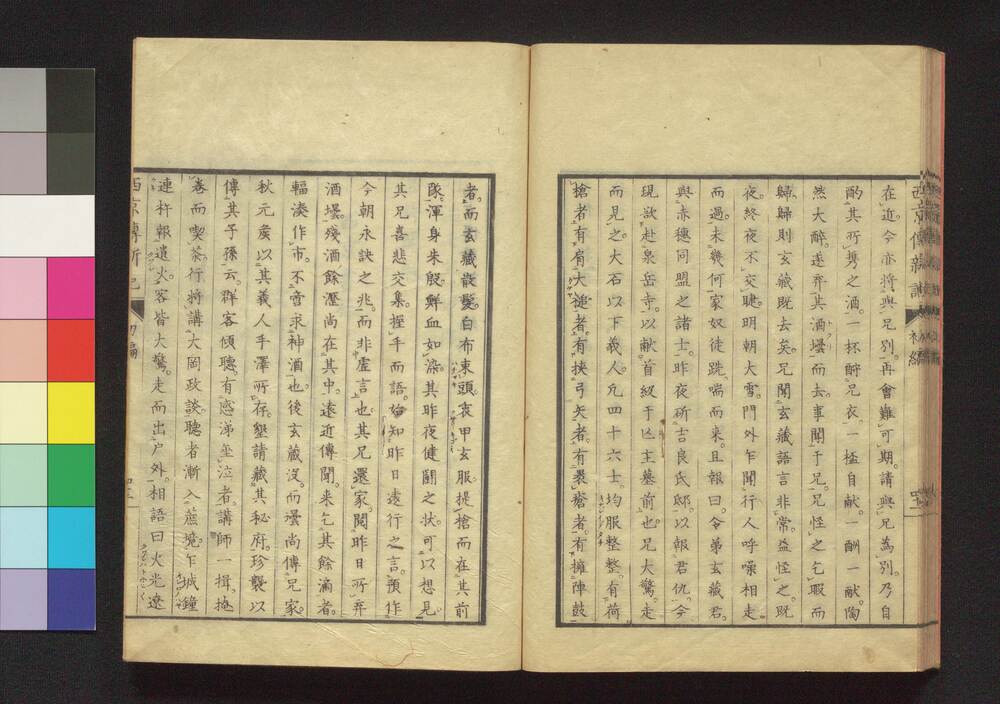 在近。今亦將與兄別。再會難可期。請與兄為別。乃自
酌其所携之酒。一杯酹兄衣。一杯自献。一酬一献。陶
然大醉。遂弃其酒壜而去。事聞于兄。兄怪之乞暇而
歸。歸則玄藏既去矣。兄聞玄藏語言非常。益怪之。既
夜。終夜不交睫。明朝大雪。門外乍聞行人呼噪相走
而過。未幾何家奴徒跣喘而来。且報曰。令弟玄藏君。
與赤穗同盟之諸士。昨夜斫吉良氏邸。以報君仇。今
現欲赴泉岳寺。以献首級于亡主墓前也。兄大驚。走
而見之。大石以下義人。凡四十六士。均服整整。有荷
槍者。有肩大槌者。有挟弓矢者。有裹瘡者。有擁陣鼓
者。而玄藏散髮。白布束頭。衷甲玄服。提槍而在其前
隊。渾身朱殷。鮮血如染。其昨夜健鬪之状。可以想見。
其兄喜悲交集。握手而語。始知昨日遠行之言。預作
今朝永訣之兆。而非虚言也。其兄還家。閲昨日所弃
酒壜。殘酒餘瀝尚在其中。遠近傳聞。来乞其餘滴者。
輻湊作市。不啻求神酒也。後玄藏没。而壜尚傳兄家。
秋元矦以其義人手澤所存。懇請藏其秘府。珍襲以
傳其子孫云。群客傾聽。有感涕坐泣者。講師一揖。掩
卷而喫茶。行將講大岡政談。聽者漸入蔗境。乍城鐘
連杵報遺火。客皆大驚。走而出戸外。相語曰火光遼
西京傳新記 初編